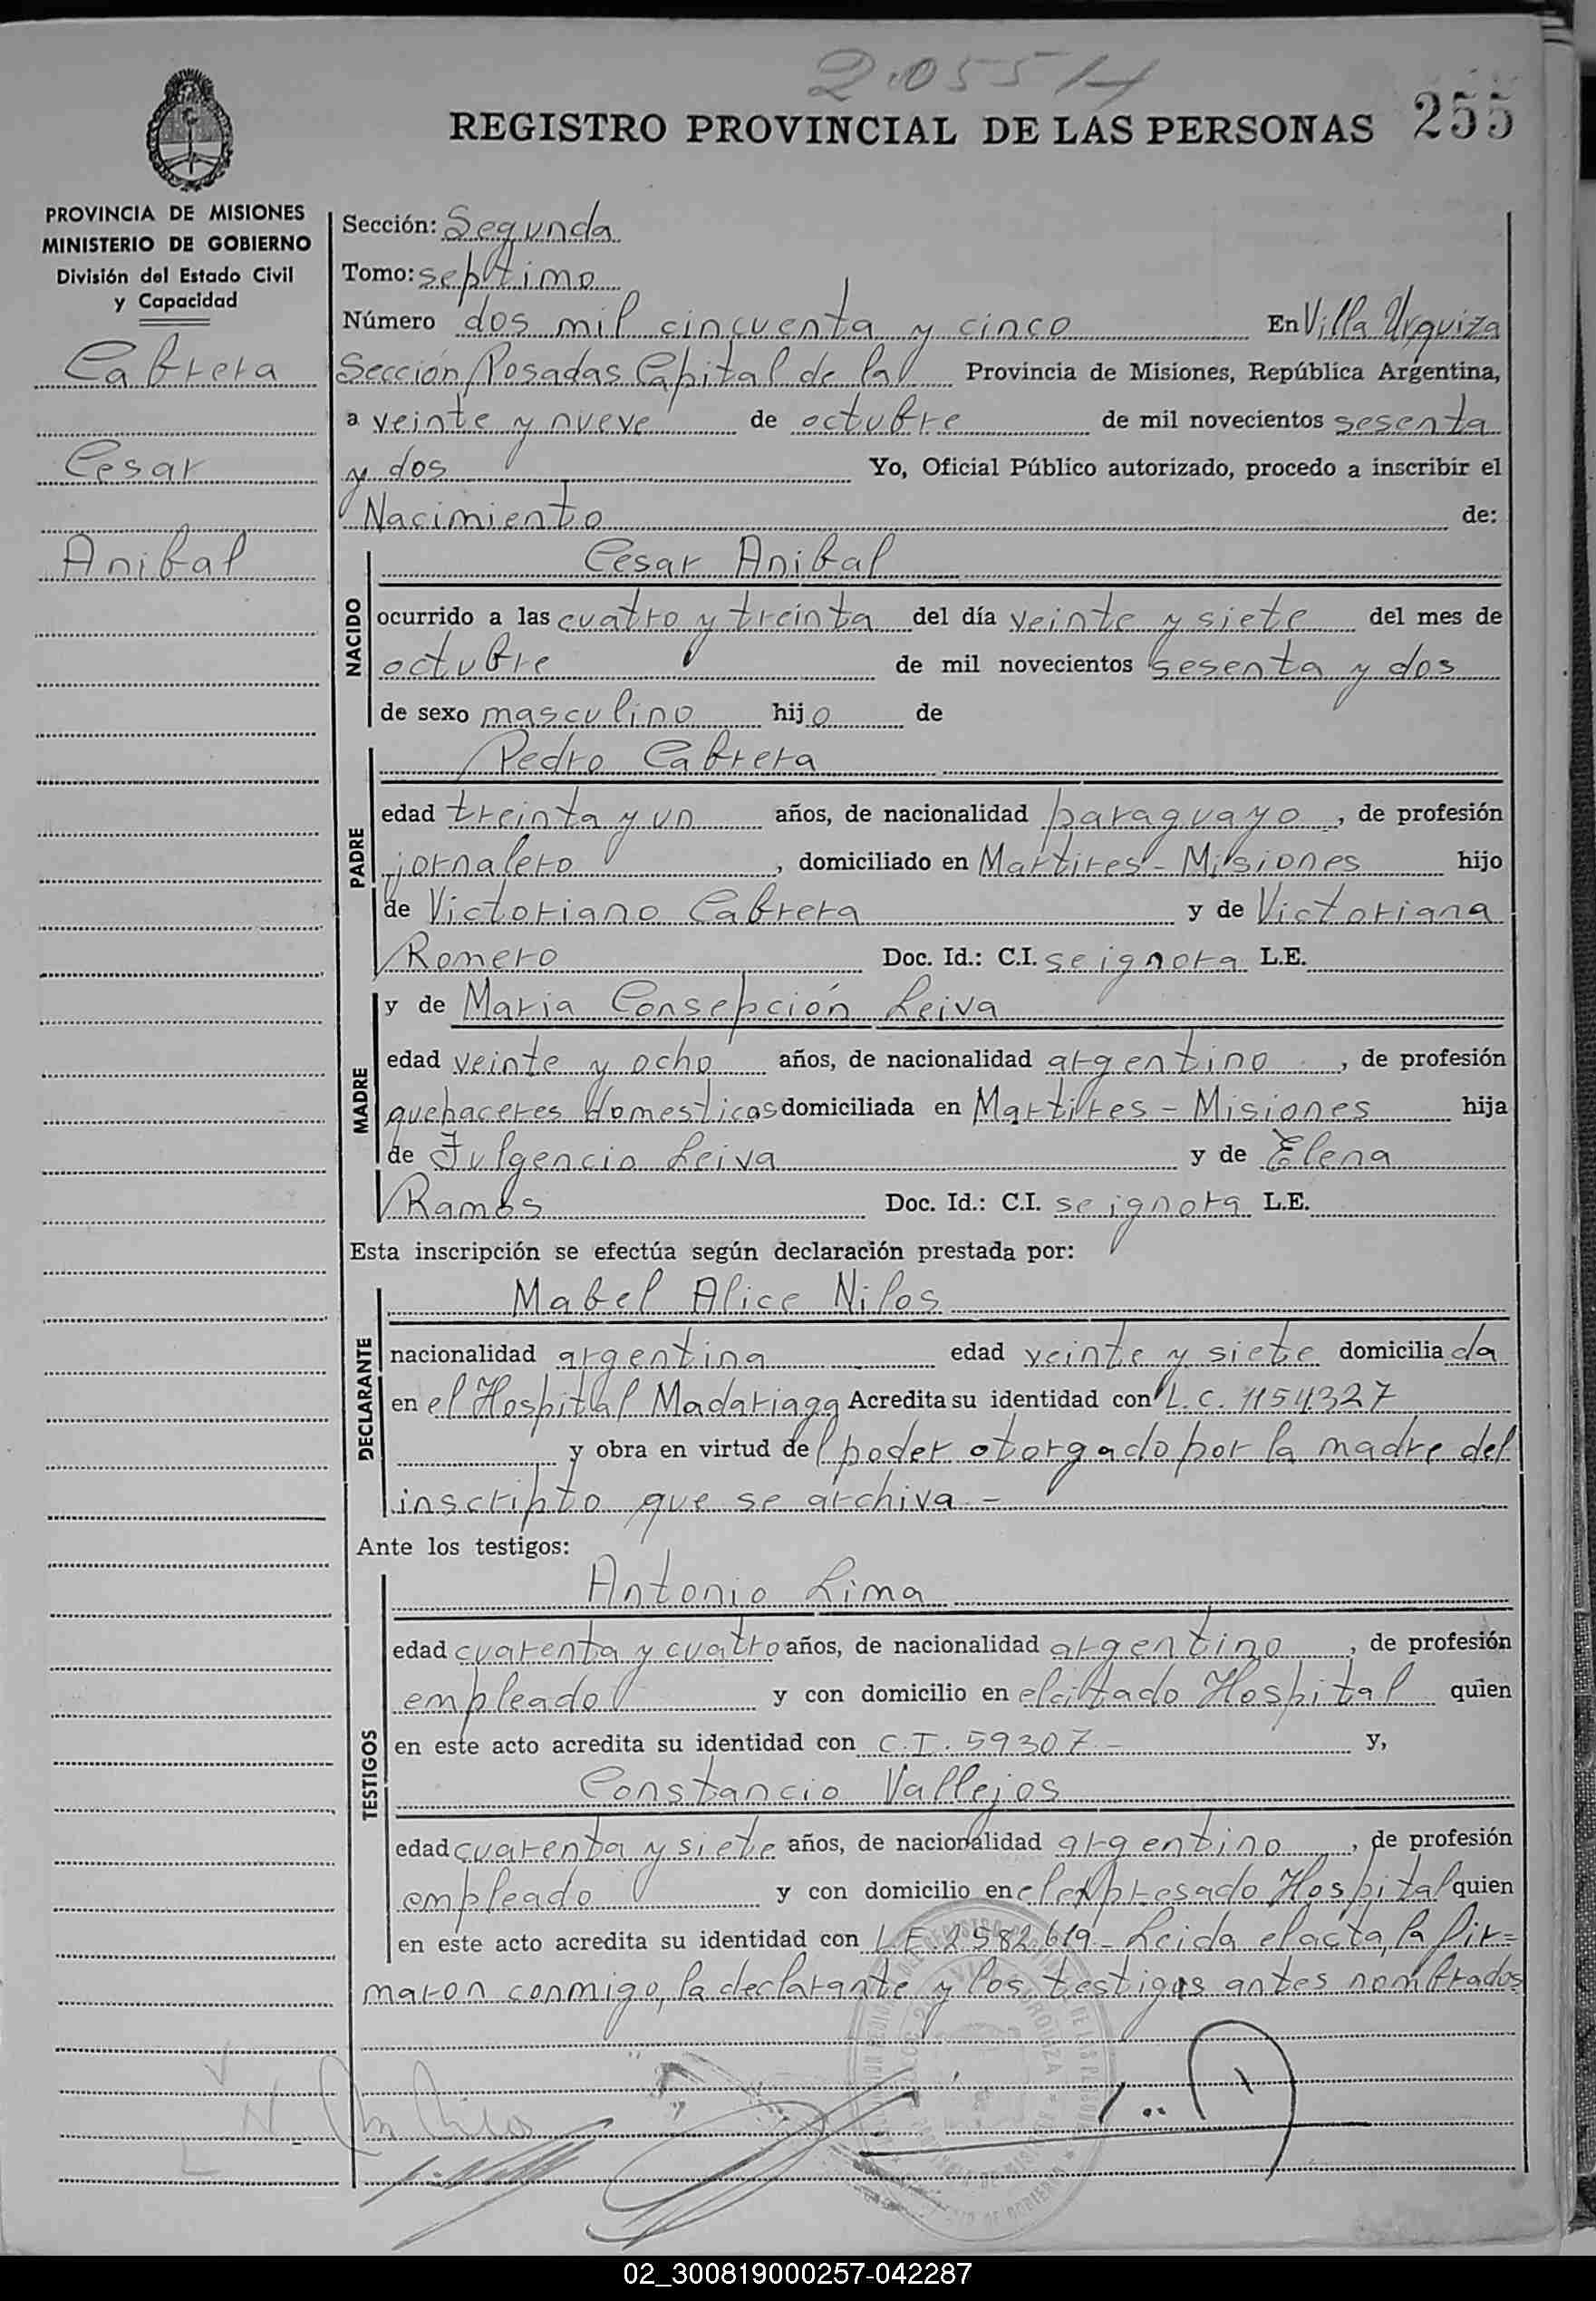 2055
REGISTRO PROVINCIAL DE LAS PERSONAS 255
PROVINCIA DE MISIONES
MINISTERIO DE GOBIERNO
División del Estado Civil
y Capacidad
Cabrera
Cesar
Anibal
Sección: Segunda
Tomo: septimo
Número dos mil cincuenta y cinco En Villa Urquiza
Sección Posadas Capital de la Provincia de Misiones, República Argentina,
a veinte y nueve de octubre de mil novecientos sesenta
y dos Yo, Oficial Público autorizado, procedo a inscribir el
Nacimiento de:
NACIDO
Cesar Anibal
ocurrido a las cuatro y treinta del día veinte y siete del mes de
octubre de mil novecientos sesenta y dos
de sexo masculino hijo de
PADRE
Pedro Cabrera
edad treinta y un años, de nacionalidad paraguayo, de profesión
jornalero, domiciliado en Martires - Misiones hijo
de Victoriano Cabrera y de Victoriana
Romero Doc. Id.: C.I. se ignora L.E.
MADRE
y de Maria Consepción Leiva
edad veinte y ocho años, de nacionalidad argentino, de profesión
quehaceres domesticos domiciliada en Martires - Misiones hija
de Fulgencio Leiva y de Elena
Ramos Doc. Id.: C.I. se ignora L.E.
Esta inscripción se efectúa según declaración prestada por:
DECLARANTE
Mabel Alice Nilos
nacionalidad argentina edad veinte y siete domiciliada
en el Hospital Madariaga Acredita su identidad con L.C. 1154327
y obra en virtud del poder otorgado por la madre del
inscripto que se archiva -
Ante los testigos:
TESTIGOS
Antonio Lima
edad cuarenta y cuatro años, de nacionalidad argentino, de profesión
empleado y con domicilio en el citado Hospital quien
en este acto acredita su identidad con C.I. 59307 - y,
Constancio Vallejos
edad cuarenta y siete años, de nacionalidad argentino, de profesión
empleado y con domicilio en el expresado Hospital quien
en este acto acredita su identidad con L.E. 2582619 - Leida el acta, la fir=
maron conmigo, la declarante y los testigos antes nombrados
02_300819000257-042287